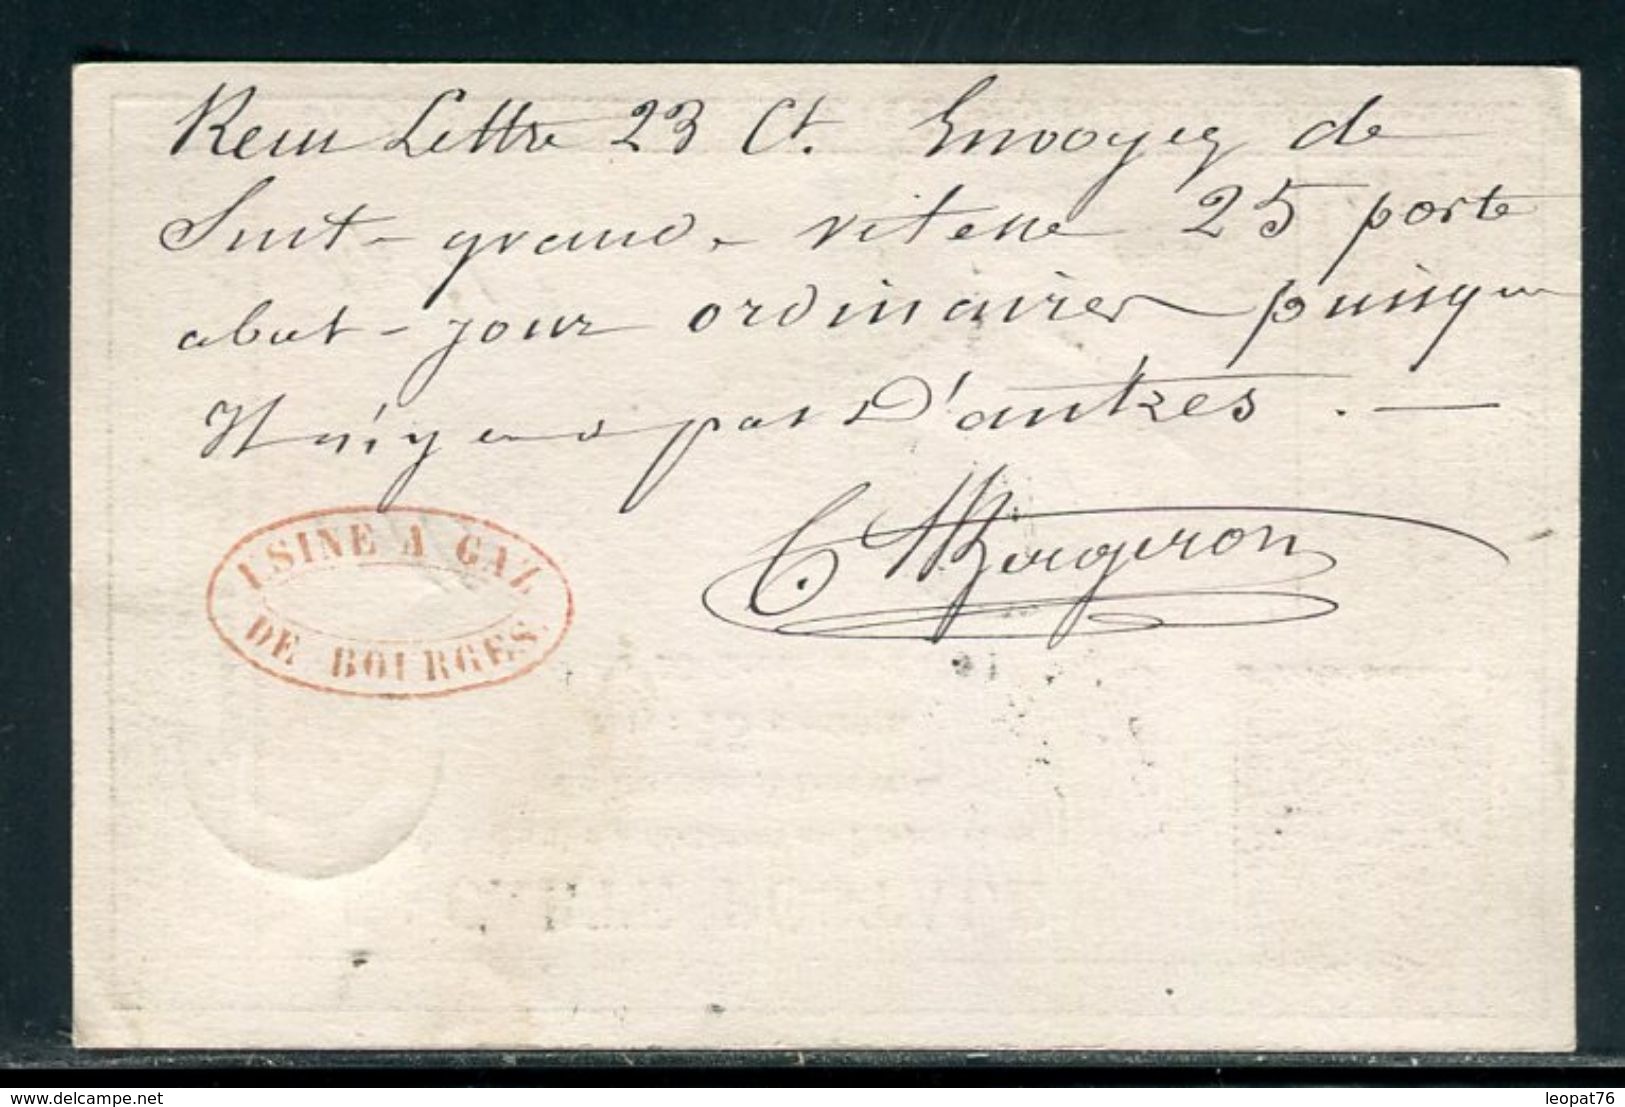 Reçu Lettre 23 Ct. Envoyez de
Suit- grand- vitesse 25 porte
abat-jour ordinaires puisque
Il n'y en a pas D'autres. —
C Bergeron
USINE A GAZ
DE BOURGES.
delcampe.net
leopat76